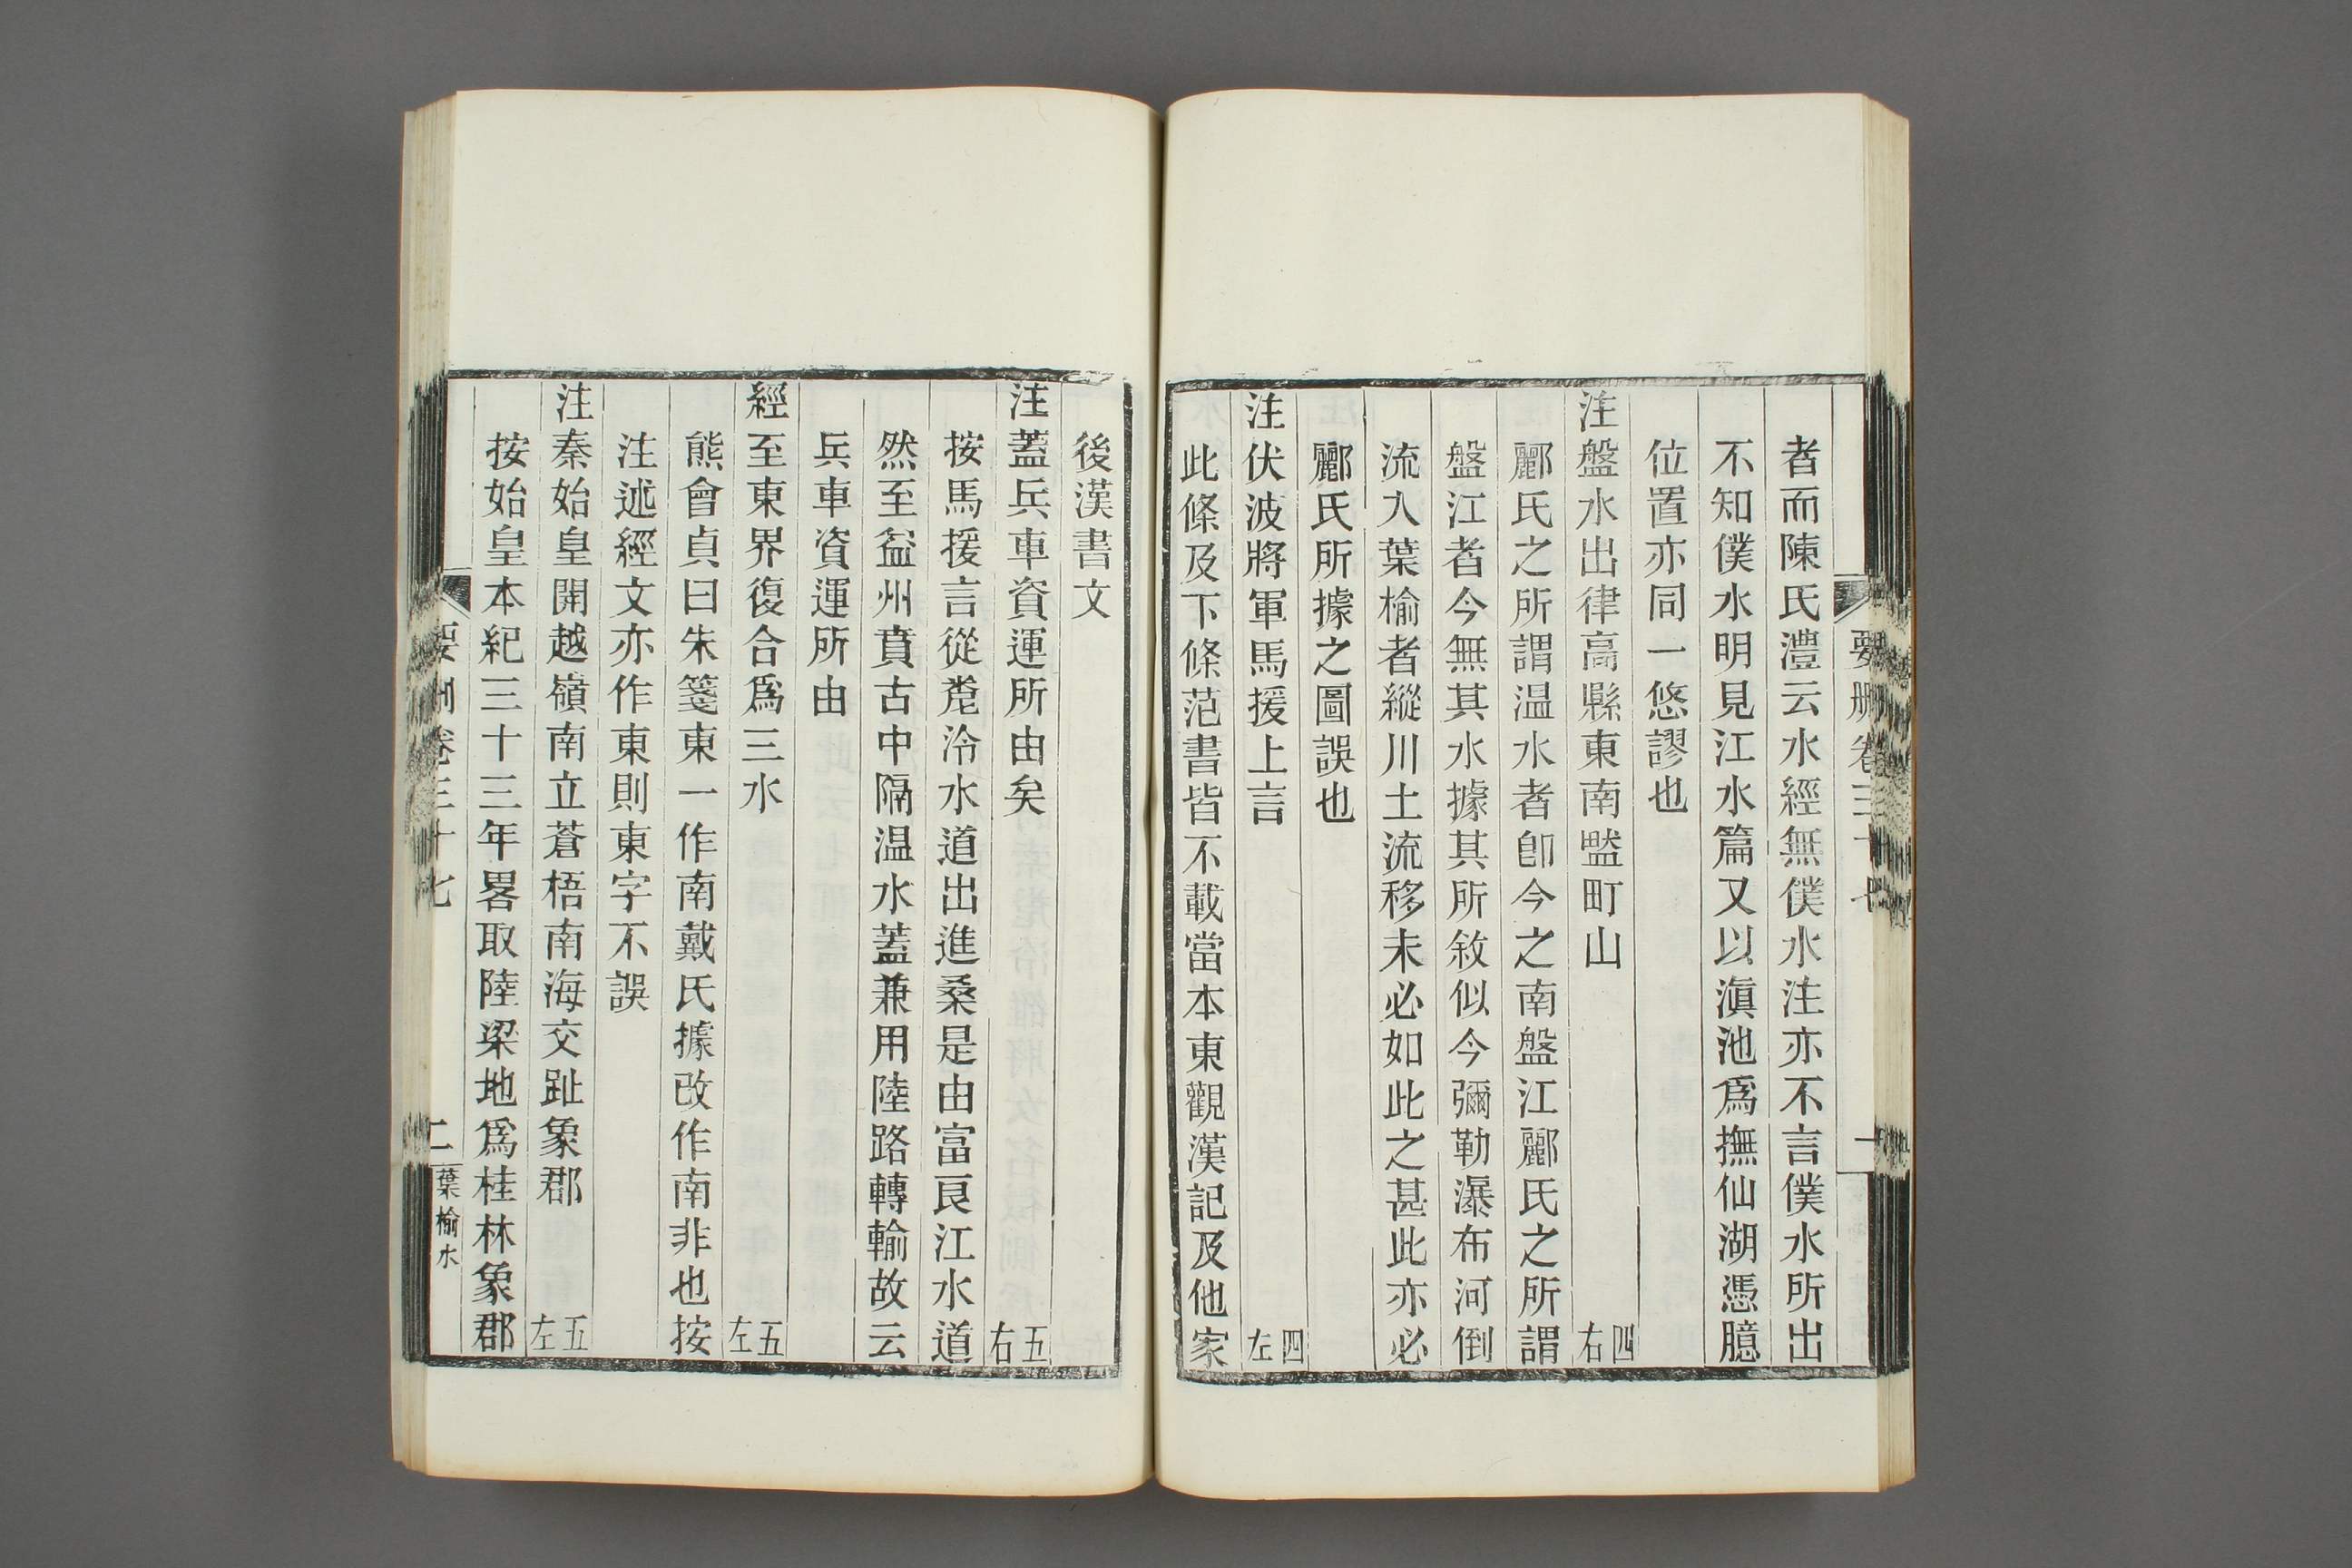 要刪卷三十七
一
者而陳氏澧云水經無僕水注亦不言僕水所出
不知僕水明見江水篇又以滇池爲撫仙湖憑臆
位置亦同一悠謬也
注盤水出律高縣東南盢町山 四右
酈氏之所謂温水者卽今之南盤江酈氏之所謂
盤江者今無其水據其所敘似今彌勒瀑布河倒
流入葉榆者縱川土流移未必如此之甚此亦必
酈氏所據之圖誤也
注伏波將軍馬援上言 四左
此條及下條范書皆不載當本東觀漢記及他家
後漢書文
注蓋兵車資運所由矣 五右
按馬援言從麊泠水道出進桑是由富良江水道
然至益州賁古中隔温水蓋兼用陸路轉輸故云
兵車資運所由
經至東界復合爲三水 五左
熊會貞曰朱箋東一作南戴氏據改作南非也按
注述經文亦作東則東字不誤
注秦始皇開越嶺南立蒼梧南海交趾象郡 五左
按始皇本紀三十三年畧取陸梁地爲桂林象郡
要刪卷三十七
二
葉榆水